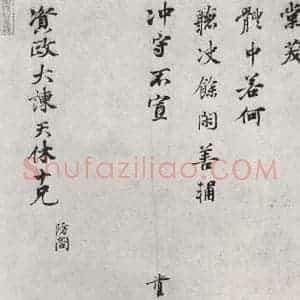 棠茂
體中若何
聽決餘閑善輔
冲守不宣
襄
資政大諫天休廿兄
防閤
Shufaziliao.com